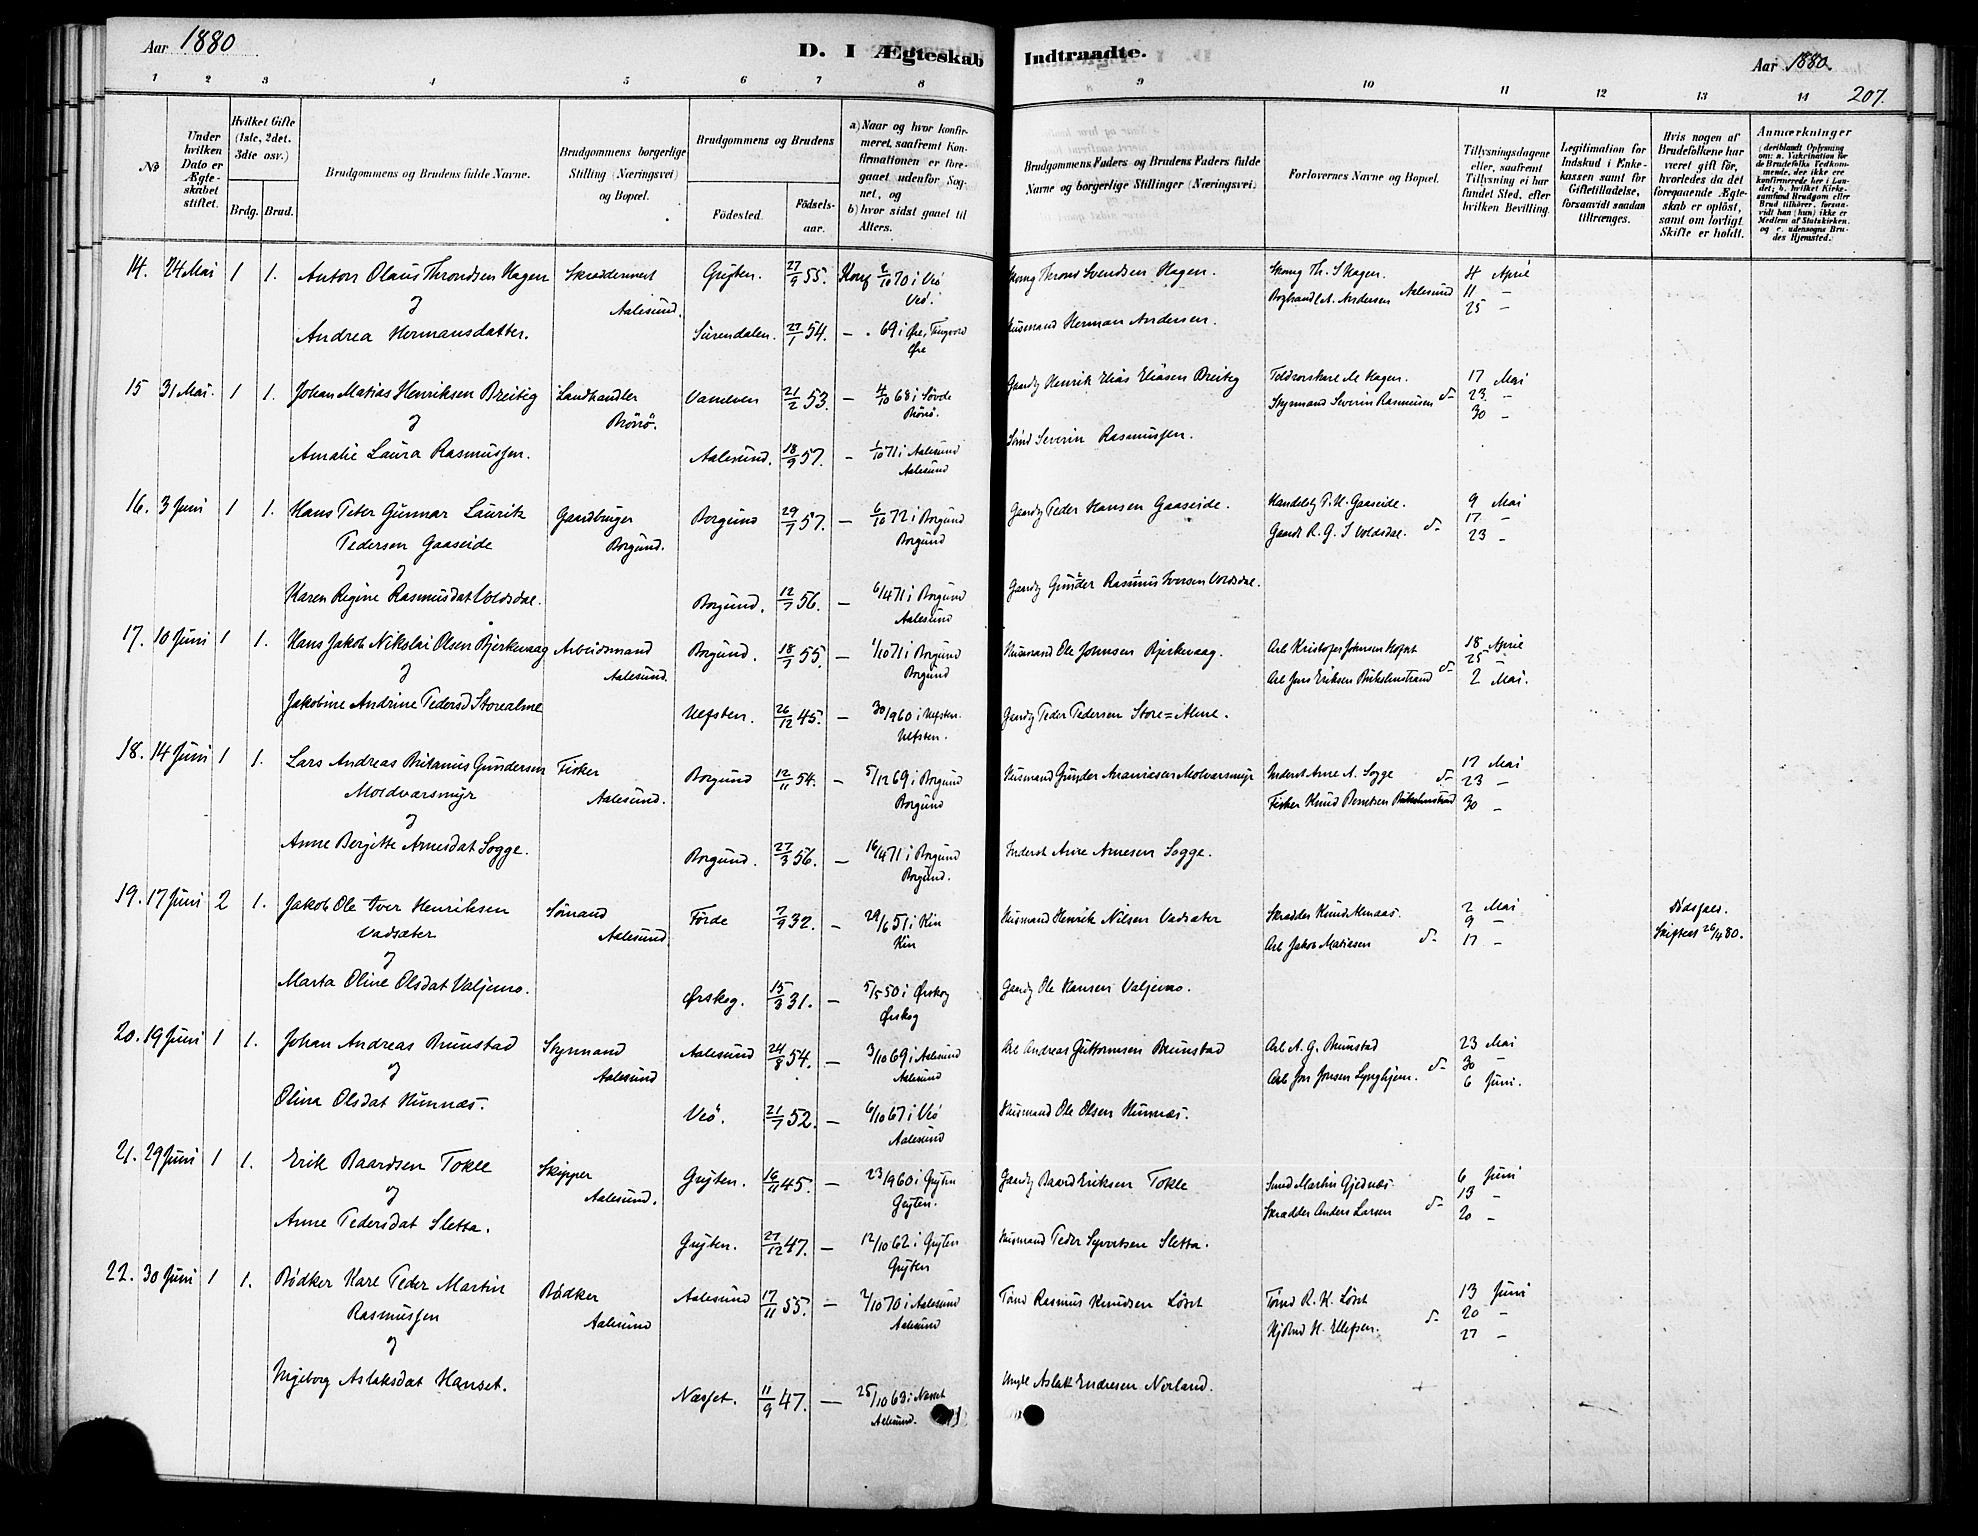 Aar 1880
D. I Ægteskab Indtraadte.
Aar 1880.
207.
1 2 3 4 5 6 7 8 9 10 11 12 13 14
No
Under hvilken Dato er Ægteskabet stiftet.
Hvilket Gifte (1ste, 2det. 3die osv.)
Brdg. Brud.
Brudgommens og Brudens fulde Navne.
Brudgommens borgerlige Stilling (Næringsvei) og Bopæl.
Brudgommens og Brudens
Fødested.
Fødselsaar.
a) Naar og hvor konfirmeret, saafremt Konfirmationen er foregaaet udenfor Sognet, og
b) hvor sidst gaaet til Alters.
Brudgommens Faders og Brudens Faders fulde Navne og borgerlige Stillinger (Næringsvei)
Forlovernes Navne og Bopæl.
Tillysningsdagene eller, saafremt Tillysning ei har fundet Sted, efter hvilken Bevilling.
Legitimation for Indskud i Enkekassen samt for Giftetilladelse, forsaavidt saadan tiltrænges.
Hvis nogen af Brudefolkene har været gift før, hvorledes da det foregaaende Ægteskab er opløst, samt om lovligt Skifte er holdt.
Anmærkninger
(deriblandt Oplysning om: a. Vakcination for de Brudefolks Vedkommende, der ikke ere konfirmerede her i Landet; b. hvilket Kirkesamfund Brudgom eller Brud tilhører, forsaavidt han (hun) ikke er Medlem af Statskirken og c. udensogns Brudes Hjemsted.)
14. 24 Mai 1 1. Anton Olaus Throndsen Hagen Grytten. 27/9 55. Konf 2/10 70 i Veö Throns Svendsen Hagen. Th. S Hagen. 4 April
og Aalesund. Veö. A. Andersen Aalesund 11 -
25 -
Andrea Hermansdatter. Surendalen. 27/1 54. - 69 i Øre, Tingvold Husmand Herman Andersen.
Øre
15 31 Mai. 1 1. Johan Matias Henriksen Breitig Landhandler Vanelven 21/2 53. - 4/10 68 i Søvde Gaardb Henrik Elias Eliasen Breitig M Hagen. 17 Mai
og Severin Rasmussen 23 -
30 -
Amalie Laura Rasmussen. Aalesund. 18/9 57. - 1/10 71 i Aalesund Severin Rasmussen.
Aalesund
16. 3 Juni 1 1. Hans Peter Gunnar Laurik Gaardbruger Borgund 29/7 57. - 6/10 72 i Borgund Gaardb Peder Hansen Gaaseide. P. H. Gaaseide. 9 Mai
Pedersen Gaaseide Borgund. Borgund R. G. I Voldsdal. 17 -
og 23 -
Karen Regine Rasmusdat Voldsdal. Borgund. 12/7 56. - 6/4 71 i Borgund Gaardb Gunder Rasmus Iversen Voldsdal.
Aalesund
17. 10 Juni 1 1. Hans Jakob Nikolai Olsen Bjerkevaag Arbeidsmand Borgund. 18/7 55. - 1/10 71 i Borgund Husmand Ole Johnsen Bjerkevaag. Arb Kristofer Johnsen 18 April
og Aalesund. Borgund Arb Jens Eriksen 25 -
2 Mai.
Jakobine Andrine Pedersd Storealme Ulfsten. 26/12 45. - 30/9 60 i Ulfsten. Gaardb Peder Pedersen Store=Alme.
Ulfsten.
18. 14 Juni 1 1. Lars Andreas Britanus Gundersen Fisker Borgund 12/11 54. - 5/12 69 i Borgund Husmand Gunder Ananiasen Molvarsmyr Inderst Arne A. Sogge 17 Mai
Moldværsmyr Aalesund. Borgund Fisker Knud Berntsen 23 -
og 30 -
Anne Bergitte Arnesdat Sogge. Borgund. 27/3 56. - 16/4 71 i Borgund Inderst Arne Arnesen Sogge.
Borgund.
19. 17 Juni 2 1. Jakob Ole Iver Henriksen Sømand Førde 7/9 32. - 29/6 51 i Kin Husmand Henrik Nilsen Vadsæter Skrædder Knud Almaas. 2 Mai Dødsfald.
Vadsæter Aalesund Kin Arb Jakob Matiasen 9 - Skiftet 26/4 80.
og 17 -
Marta Oline Olsdat Valjemo. Ørskog. 15/3 31. - 5/5 50 i Ørskog Gaardb Ole Hansen Valjemo.
Ørskog
20. 19 Juni 1 1. Johan Andreas Brunstad Styrmand Aalesund 24/8 54. - 3/10 69 i Aalesund Arb Andreas Guttormsen Brunstad Arb A. G. Brunstad 23 Mai
og Aalesund Aalesund Arb Jon Jonsen Lynghjem. 30 -
6 Juni.
Olina Olsdat Hunnæs. Veö. 21/7 52. - 6/10 67 i Veö Husmand Ole Olsen Hunnæs.
Aalesund
21. 29 Juni 1 1. Erik Baardsen Tokle Skipper Grytten. 16/11 45. - 23/9 60 i Grytten Gaardb Baard Eriksen Tokle Martin Gjednæs. 6 Juni
og Aalesund. Grytten. Skrædder Anders Larsen 13 -
20 -
Anne Pedersdat Sletta. Grytten. 27/12 47. - 12/10 62 i Grytten Husmand Peder Syvertsen Sletta.
Grytten
22. 30 Juni 1 1. Bødker Karl Peder Martin Bødker Aalesund 17/11 55. - 2/10 70 i Aalesund Rasmus Knudsen Løset R. K. Løset 13 Juni
Rasmussen Aalesund Aalesund H. Ellefsen. 20 -
og 27 -
Ingeborg Aslaksdat Hanset. Næsset. 11/9 47. - 25/10 63 i Næsset Aslak Endresen Norland.
Aalesund.